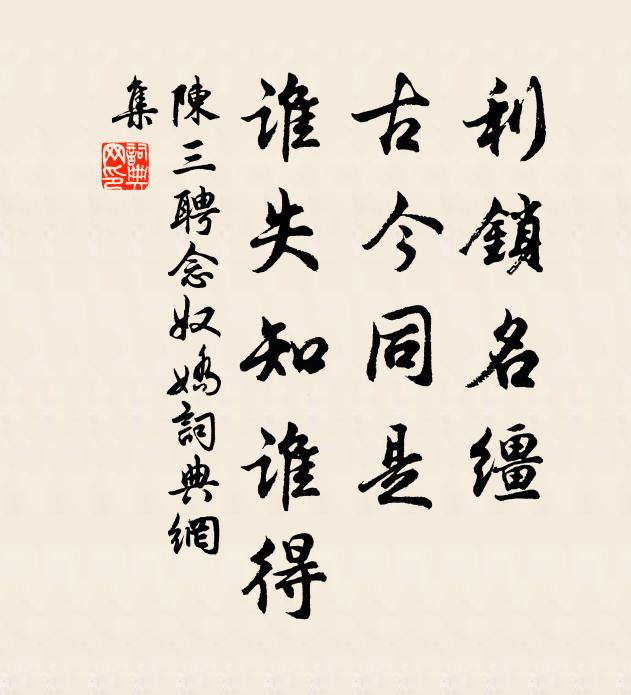 利鎖名繮
古今同是
誰失知誰得
陳三聘念奴嬌詞典網
集
詞典網印